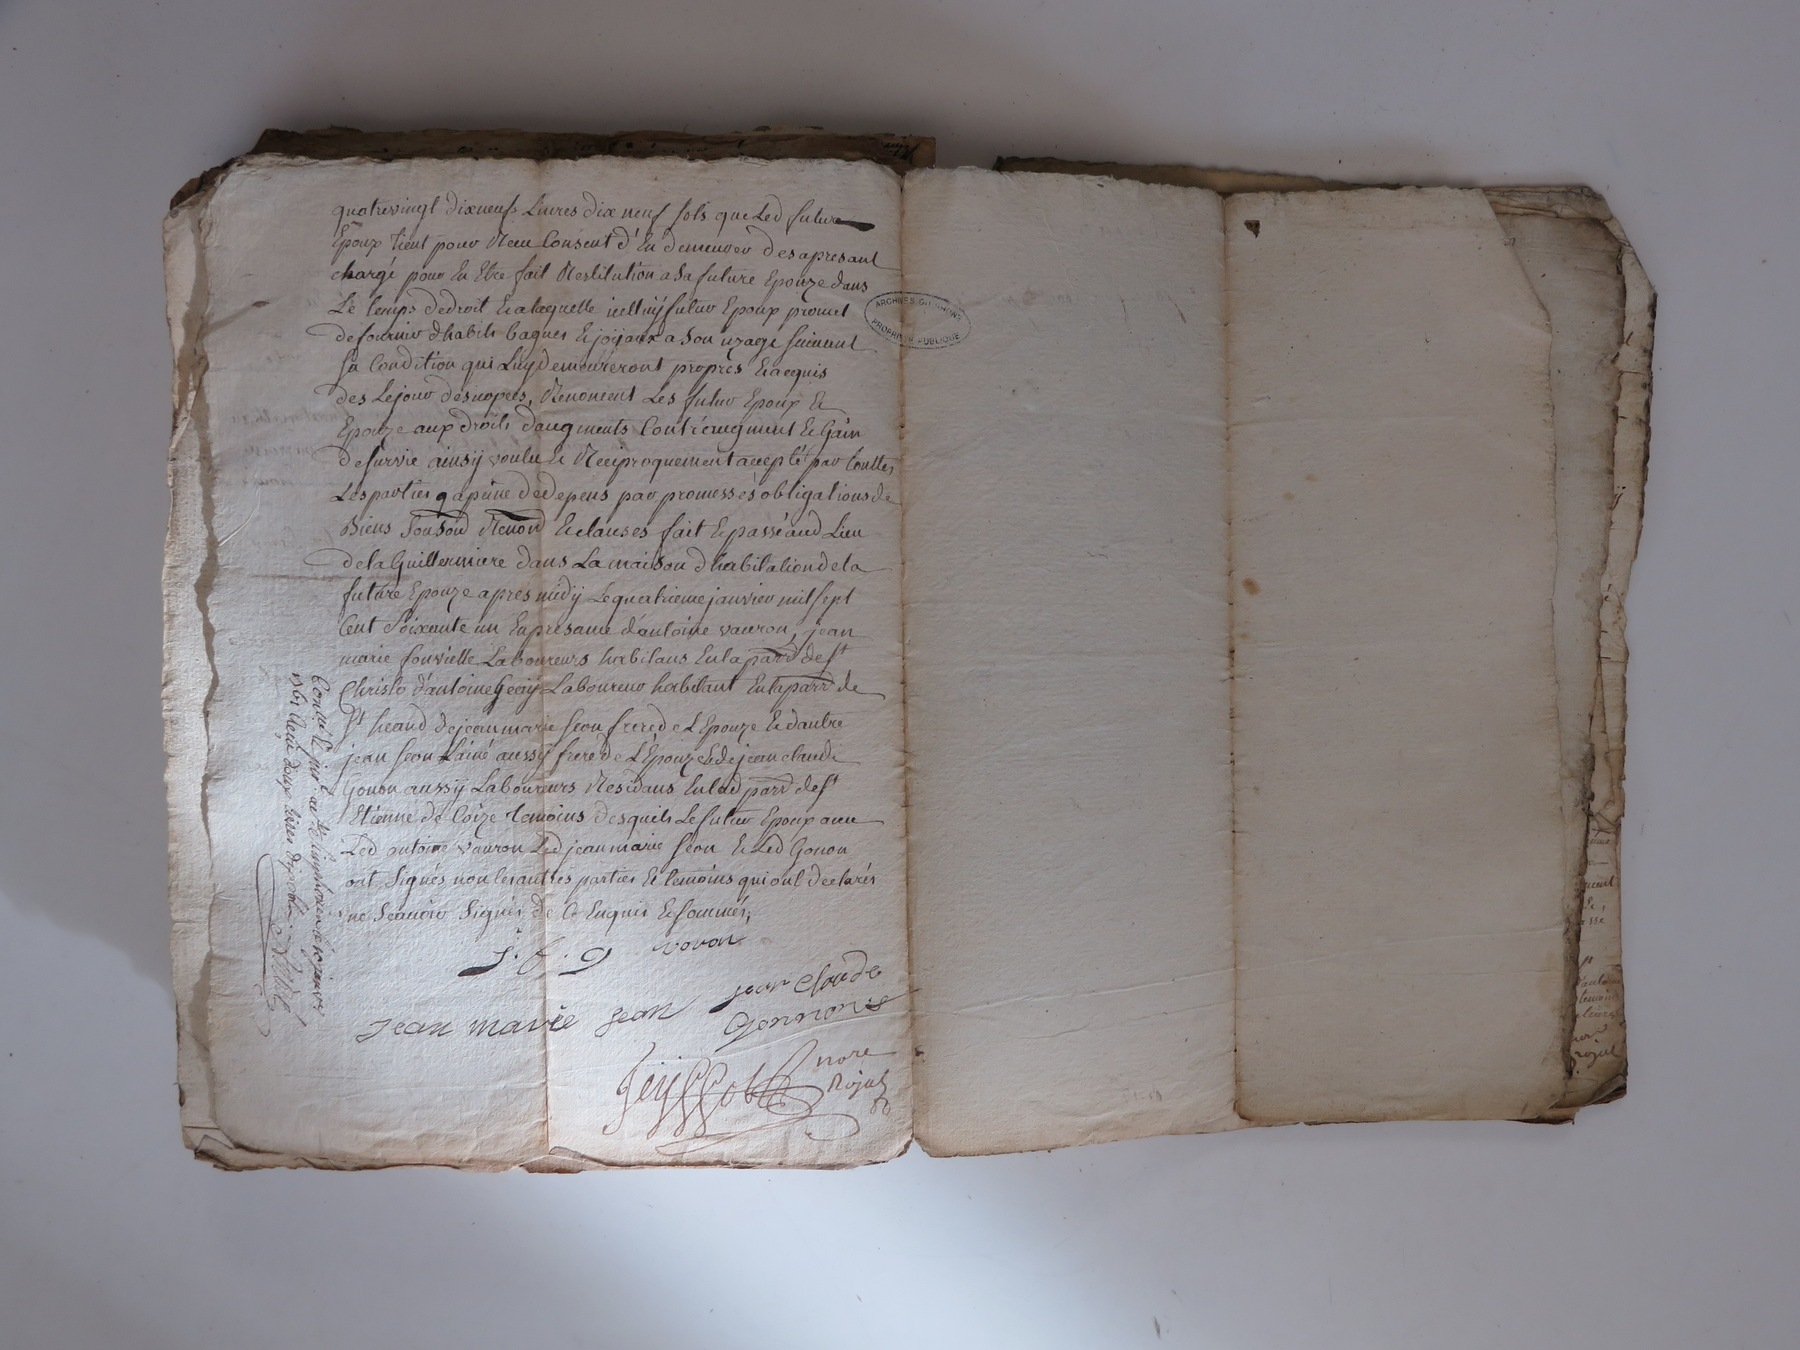 quatrevingt dixneuf Livres dix neuf sols que Led futur
Epoux tient pour Receu Consent d'En demeurer des apresant
chargé pour En Etre fait Restitution a Sa future Epouze dans
Le temps de droit Ea laquelle icelluy futur Epoux promet
de fournir d'habits bagues Ejoyaux a Son uzage suivant
Sa Condition qui Luy demeureront propres Eacquis
des Lejour des nopces, Renoncent Les futur Epoux Et
Epouze aux droits d'augments Contréaugment Et Gain
de survie ainsy voulu Et Reciproquement accepté par touttes
Les parties a peine de depens par promesses obligations de
Biens Renon Et clauses fait Et passé aud Lieu
de la Guillermiere dans La maison d'habitation de la
future Epouze apres midy Le quatrieme janvier mil sept
Cent Soixante un En presance d'antoine vauron, jean
marie fonvielle Laboureurs habitans En la parr de St
Christo d'antoine Geay Laboureur habitant En la parr de
St heand de jean marie Seon frere de L'Epouze Et d'autre
jean Seon L'ainé aussy frere de L'Epouze Et de jean claude
Gonon aussy Laboureurs Residans En lad parr de St
Etienne de Coize temoins desquels Le futur Epoux avec
Led antoine vauron Led jean marie Seon Et Led Gonon
ont Signés non Les autres parties Et temoins qui ont declarés
ne Scavoir Signer de Ce Enquis Et sommés,
voron
jean claude
jean marie seon
Gonnon
nore
Rojal
Conllé à St Simphorien le janvier
1761 Receu douze livres
ARCHIVES
PROPRIETE PUBLIQUE